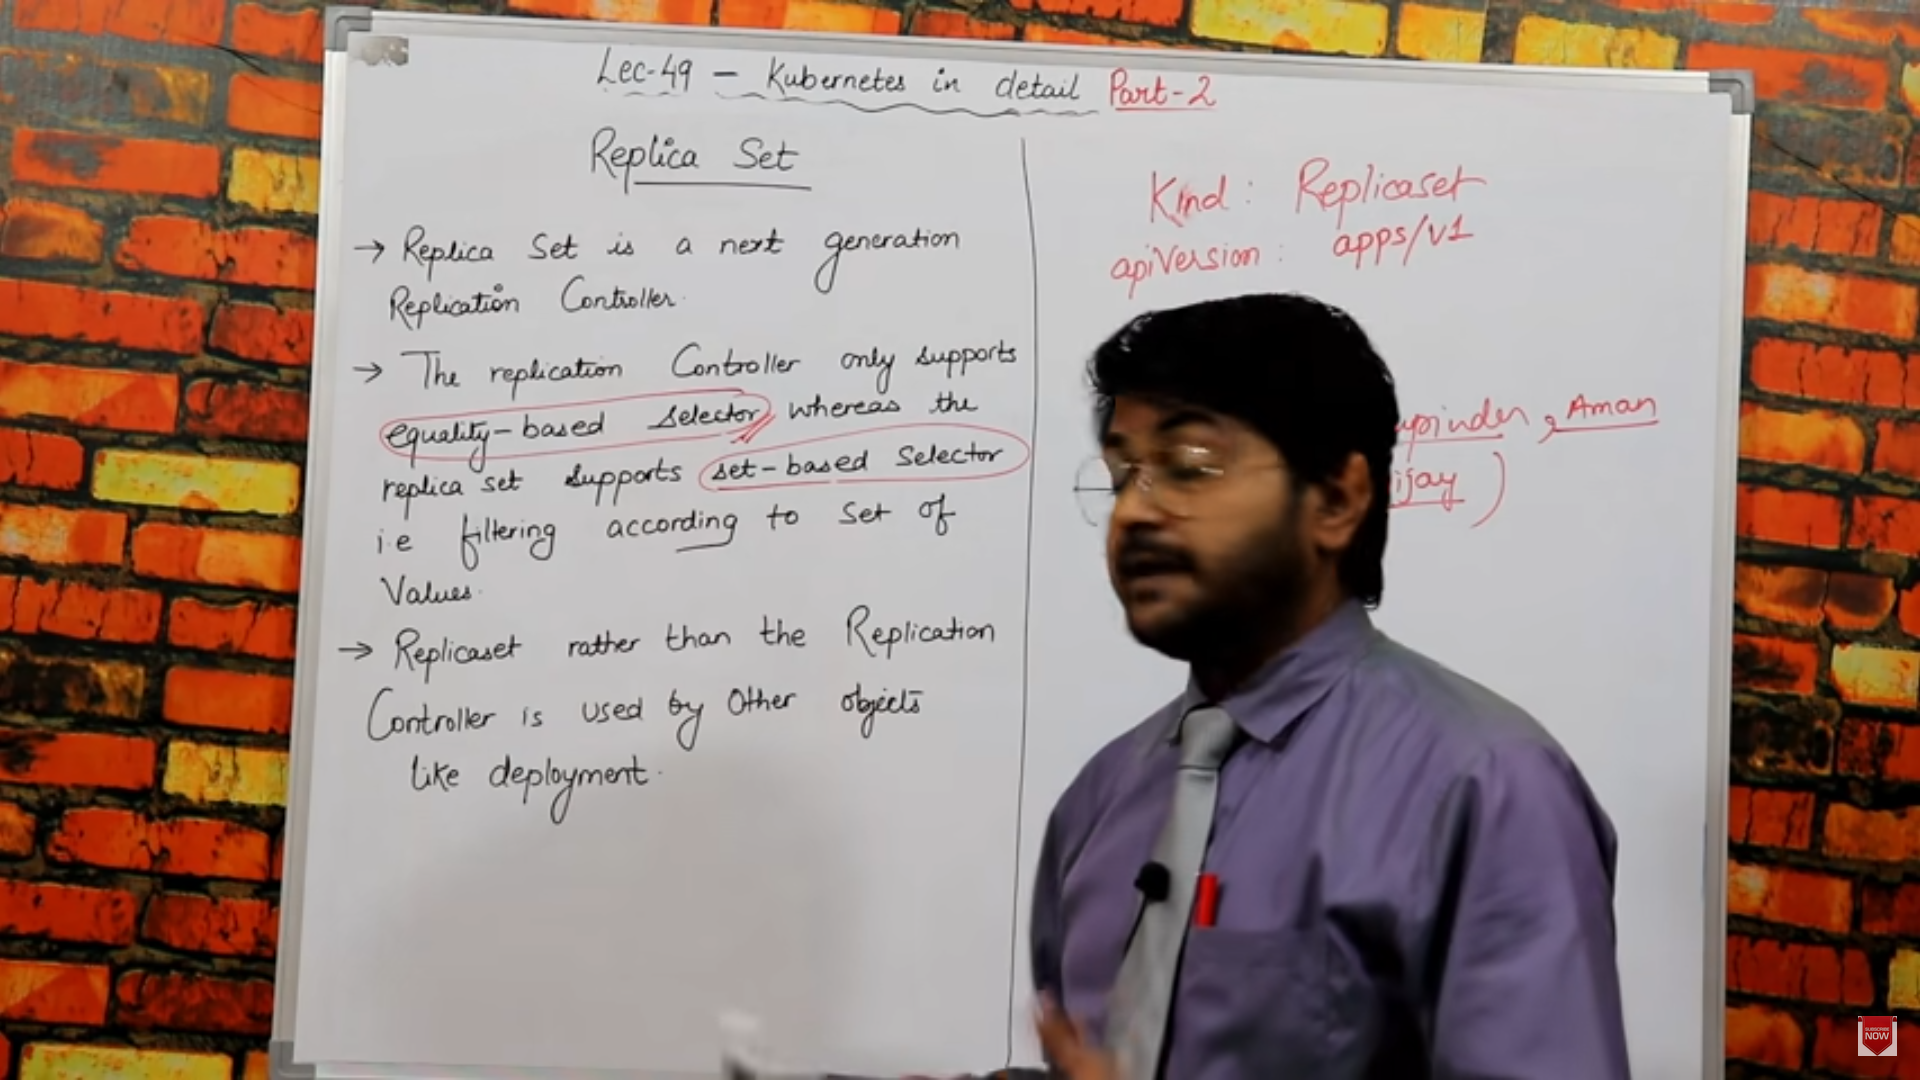 Lec-49 - Kubernetes in detail Part-2
Replica Set
→ Replica Set is a next generation
Replication Controller.
→ The replication Controller only supports
equality-based selector whereas the
replica set supports set-based Selector
i.e filtering according to set of
Values.
→ Replicaset rather than the Replication
Controller is used by other objects
like deployment.
Kind: Replicaset
apiVersion: apps/v1
, Aman
)
SUBSCRIBE
NOW